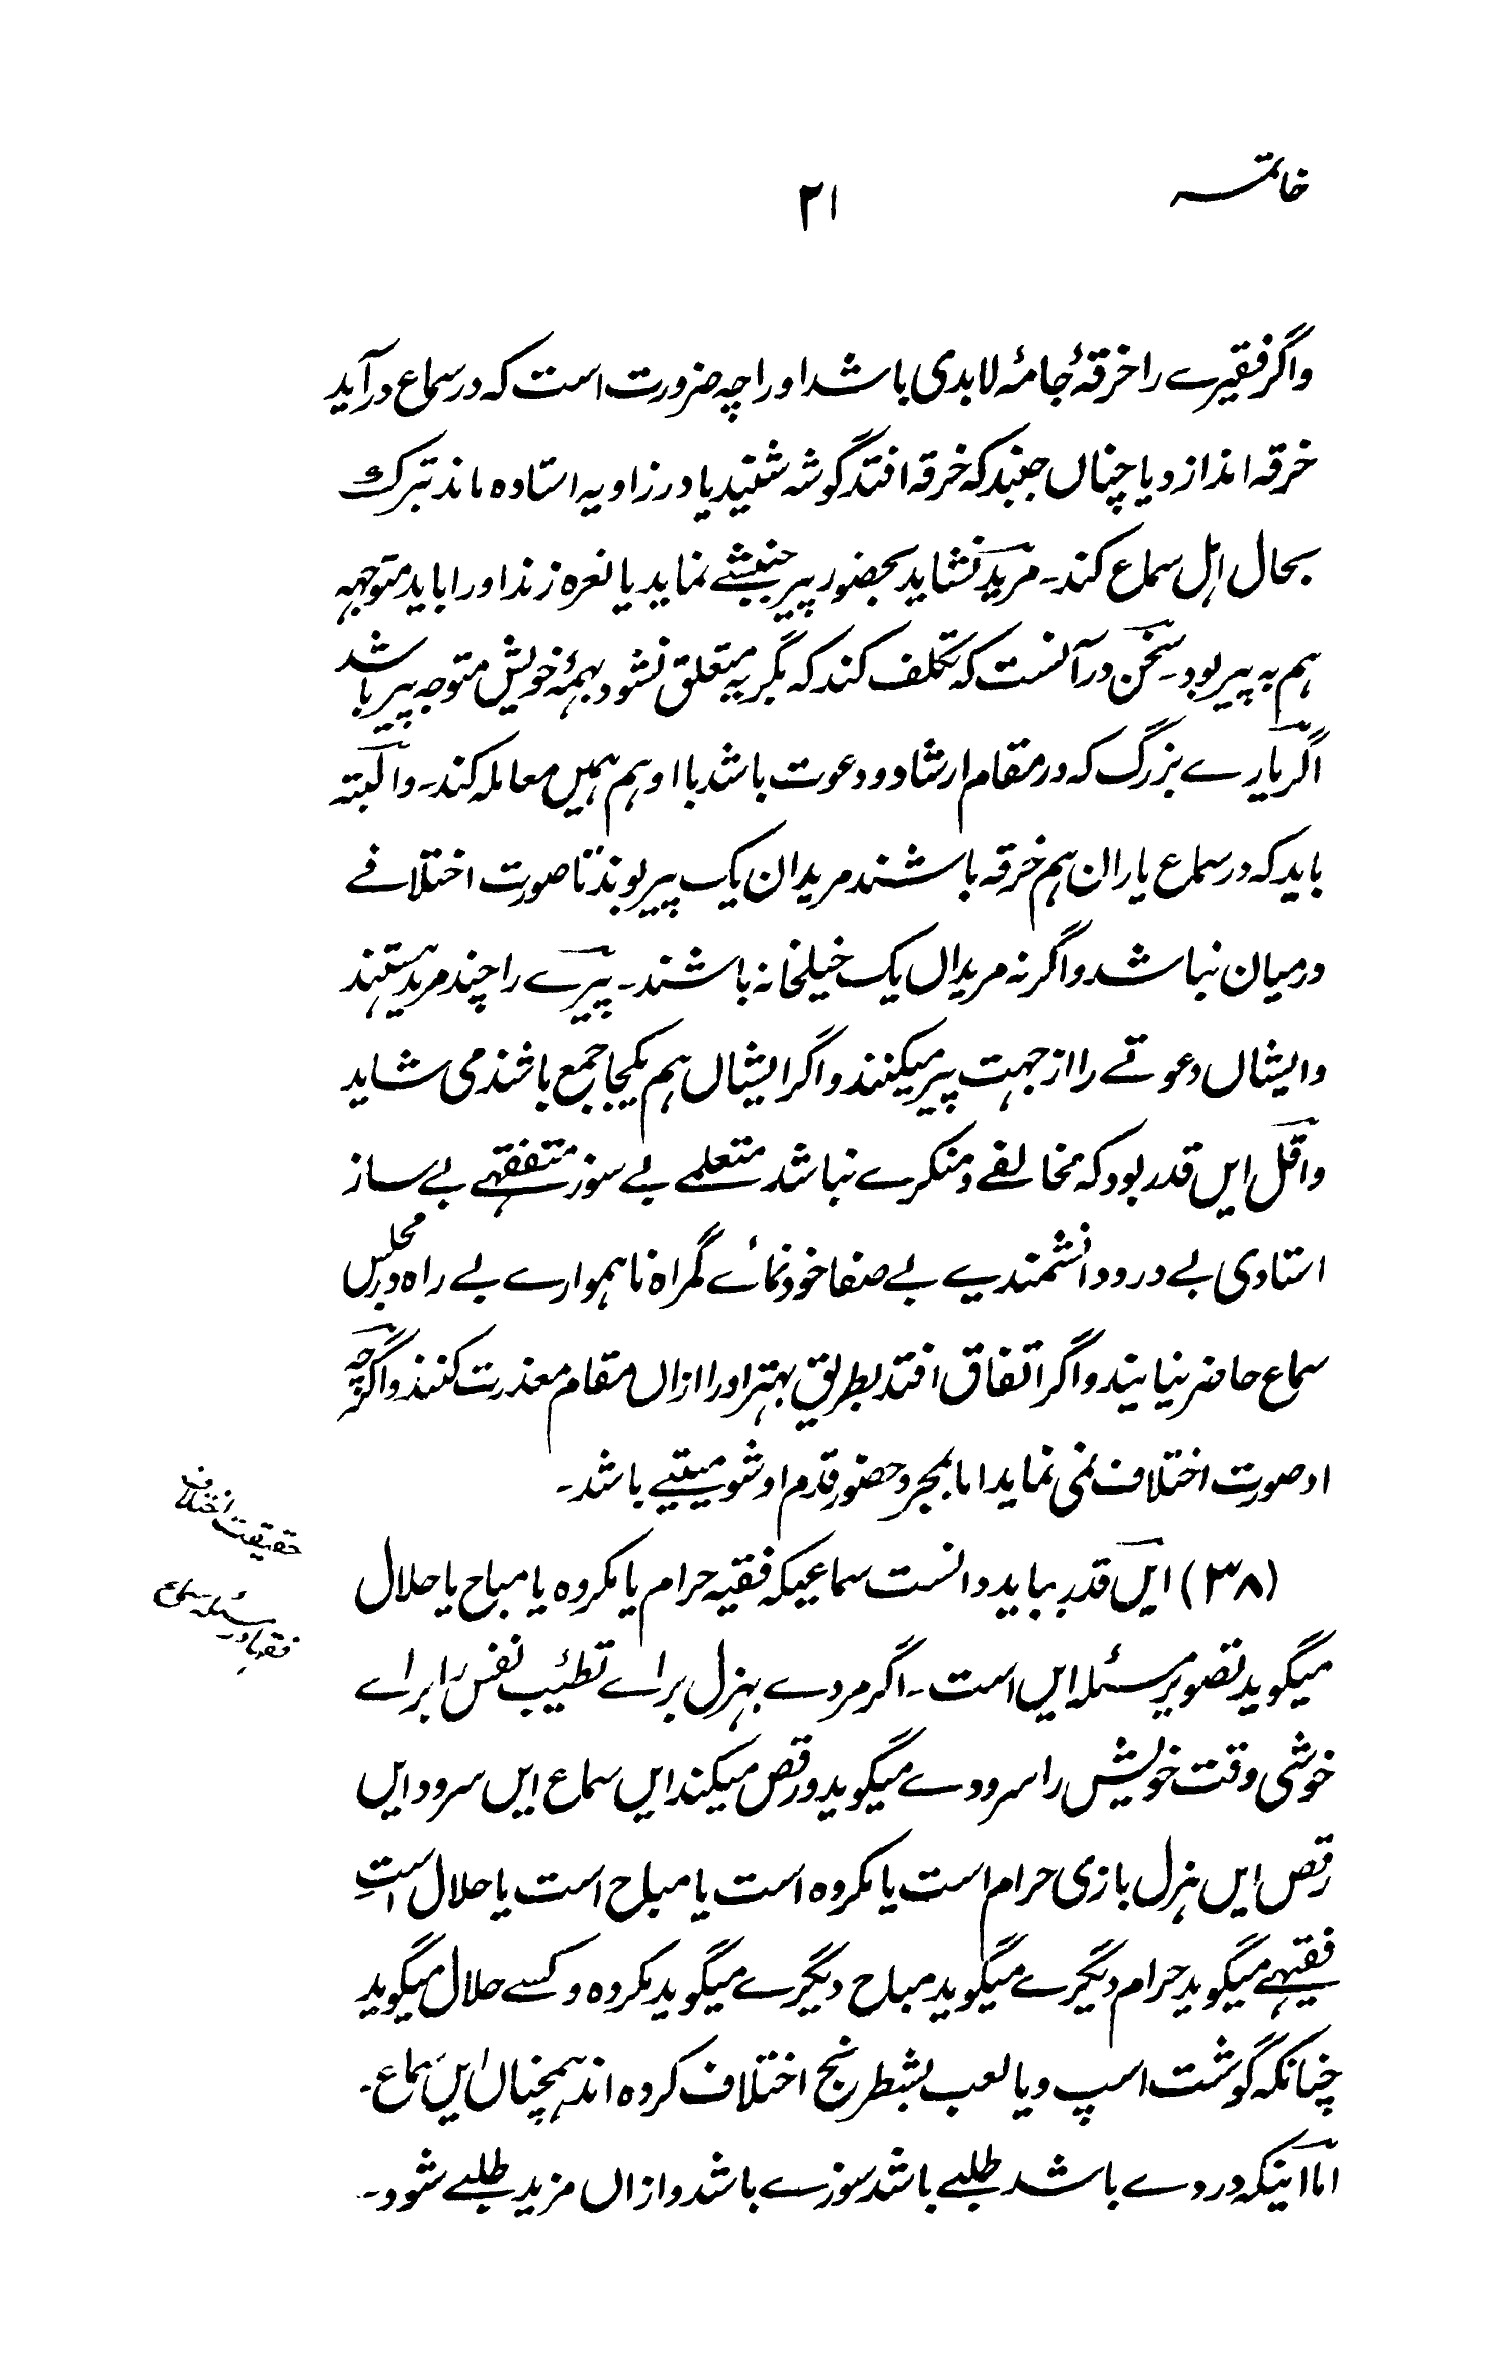 خاتمہ
۲۱
واگر فقیرے را خرقۂ جامۂ لابدی باشد او را چہ ضرورت است کہ در سماع درآید
خرقہ اندازد یا چناں جنبد کہ خرقہ افتد گوشہ شنید یا در زاویہ استادہ ماند تبرک
بحال اہل سماع کند۔ مرید نشاید بحضور پیر جنبشے نماید یا نعرہ زند او را باید متوجہ
ہم بہ پیر بود۔ سخن در آنست کہ تکلف کند کہ بگریہ متعلق نشود بہمۂ خویش متوجہ پیر باشد
اگر یارے بزرگ کہ در مقام ارشاد و دعوت باشد با او ہم ہمیں معاملہ کند۔ والبتہ
باید کہ در سماع یاران ہم خرقہ باشند مریدان یک پیر بوند تا صورت اختلافے
درمیان نباشد واگر نہ مریدال یک خیلخانہ باشند۔ پیرے را چند مرید ہستند
وایشاں دعوتے را از جہت پیر میکنند واگر ایشاں ہم یکجا جمع باشند می شاید
واقل ایں قدر بود کہ مخالفے و منکرے نباشد متعلمے بے سوز متفقہے بے ساز
استادی بے درد و دانشمندیے بے صفا خود نمائے گمراہ ناہموارے بے راہ در مجلس
سماع حاضر نیایند واگر اتفاق افتد بطریق بہتر او را ازاں مقام معذرت کنند واگرچہ
او صورت اختلاف نمی نماید اما بمجرد حضور قدم او شومیتے باشد۔
حقیقت اختلاف
فقہا در مسئلہ سماع
(۳۸) ایں قدر بباید دانست سماعیکہ فقیہ حرام یا مکروہ یا مباح یا حلال
میگوید تصویر مسئلہ ایں است۔ اگر مردے بہزل براے تطئیب نفس را براے
خوشی وقت خویش را سرودے میگوید و رقص میکند ایں سماع ایں سرود ایں
رقص ایں ہزل بازی حرام است یا مکروہ است یا مباح است یا حلال است
فقیہے میگوید حرام دیگرے میگوید مباح دیگرے میگوید مکروہ و کسے حلال میگوید
چنانکہ گوشت اسپ و یا لعب بشطرنج اختلاف کردہ اند ہمچناں ایں سماع۔
اما اینکہ دردے باشد طلبے باشد سوزے باشد و ازاں مزید طلبے شود۔